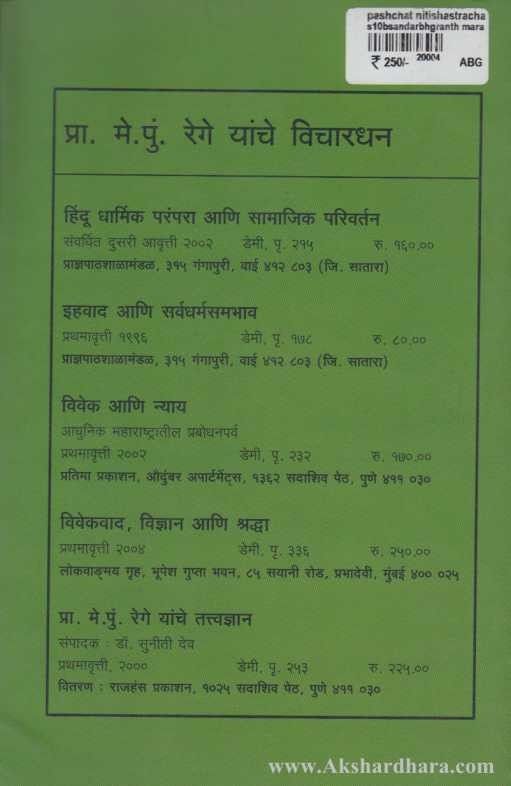 pashchat nitishastracha
s10bsandarbhgranth mara
₹ 250/- 20004 ABG
प्रा. मे.पुं. रेगे यांचे विचारधन
हिंदू धार्मिक परंपरा आणि सामाजिक परिवर्तन
संवर्धित दुसरी आवृत्ती २००२ डेमी, पृ. २१५ रु. १६०.००
प्राज्ञपाठशाळामंडळ, ३१५ गंगापुरी, वाई ४१२ ८०३ (जि. सातारा)
इहवाद आणि सर्वधर्मसमभाव
प्रथमावृत्ती १९९६ डेमी, पृ. १७८ रु. ८०.००
प्राज्ञपाठशाळामंडळ, ३१५ गंगापुरी, वाई ४१२ ८०३ (जि. सातारा)
विवेक आणि न्याय
आधुनिक महाराष्ट्रातील प्रबोधनपर्व
प्रथमावृत्ती २००२ डेमी, पृ. २३२ रु. १७०.००
प्रतिमा प्रकाशन, औदुंबर अपार्टमेंट्स, १३६२ सदाशिव पेठ, पुणे ४११ ०३०
विवेकवाद, विज्ञान आणि श्रद्धा
प्रथमावृत्ती २००४ डेमी, पृ. ३३६ रु. २५०.००
लोकवाङ्मय गृह, भूपेश गुप्ता भवन, ८५ सयानी रोड, प्रभादेवी, मुंबई ४०० ०२५
प्रा. मे.पुं. रेगे यांचे तत्त्वज्ञान
संपादक : डॉ. सुनीती देव
प्रथमावृत्ती, २००० डेमी, पृ. २५३ रु. २२५.००
वितरण : राजहंस प्रकाशन, १०२५ सदाशिव पेठ, पुणे ४११ ०३०
www.Akshardhara.com